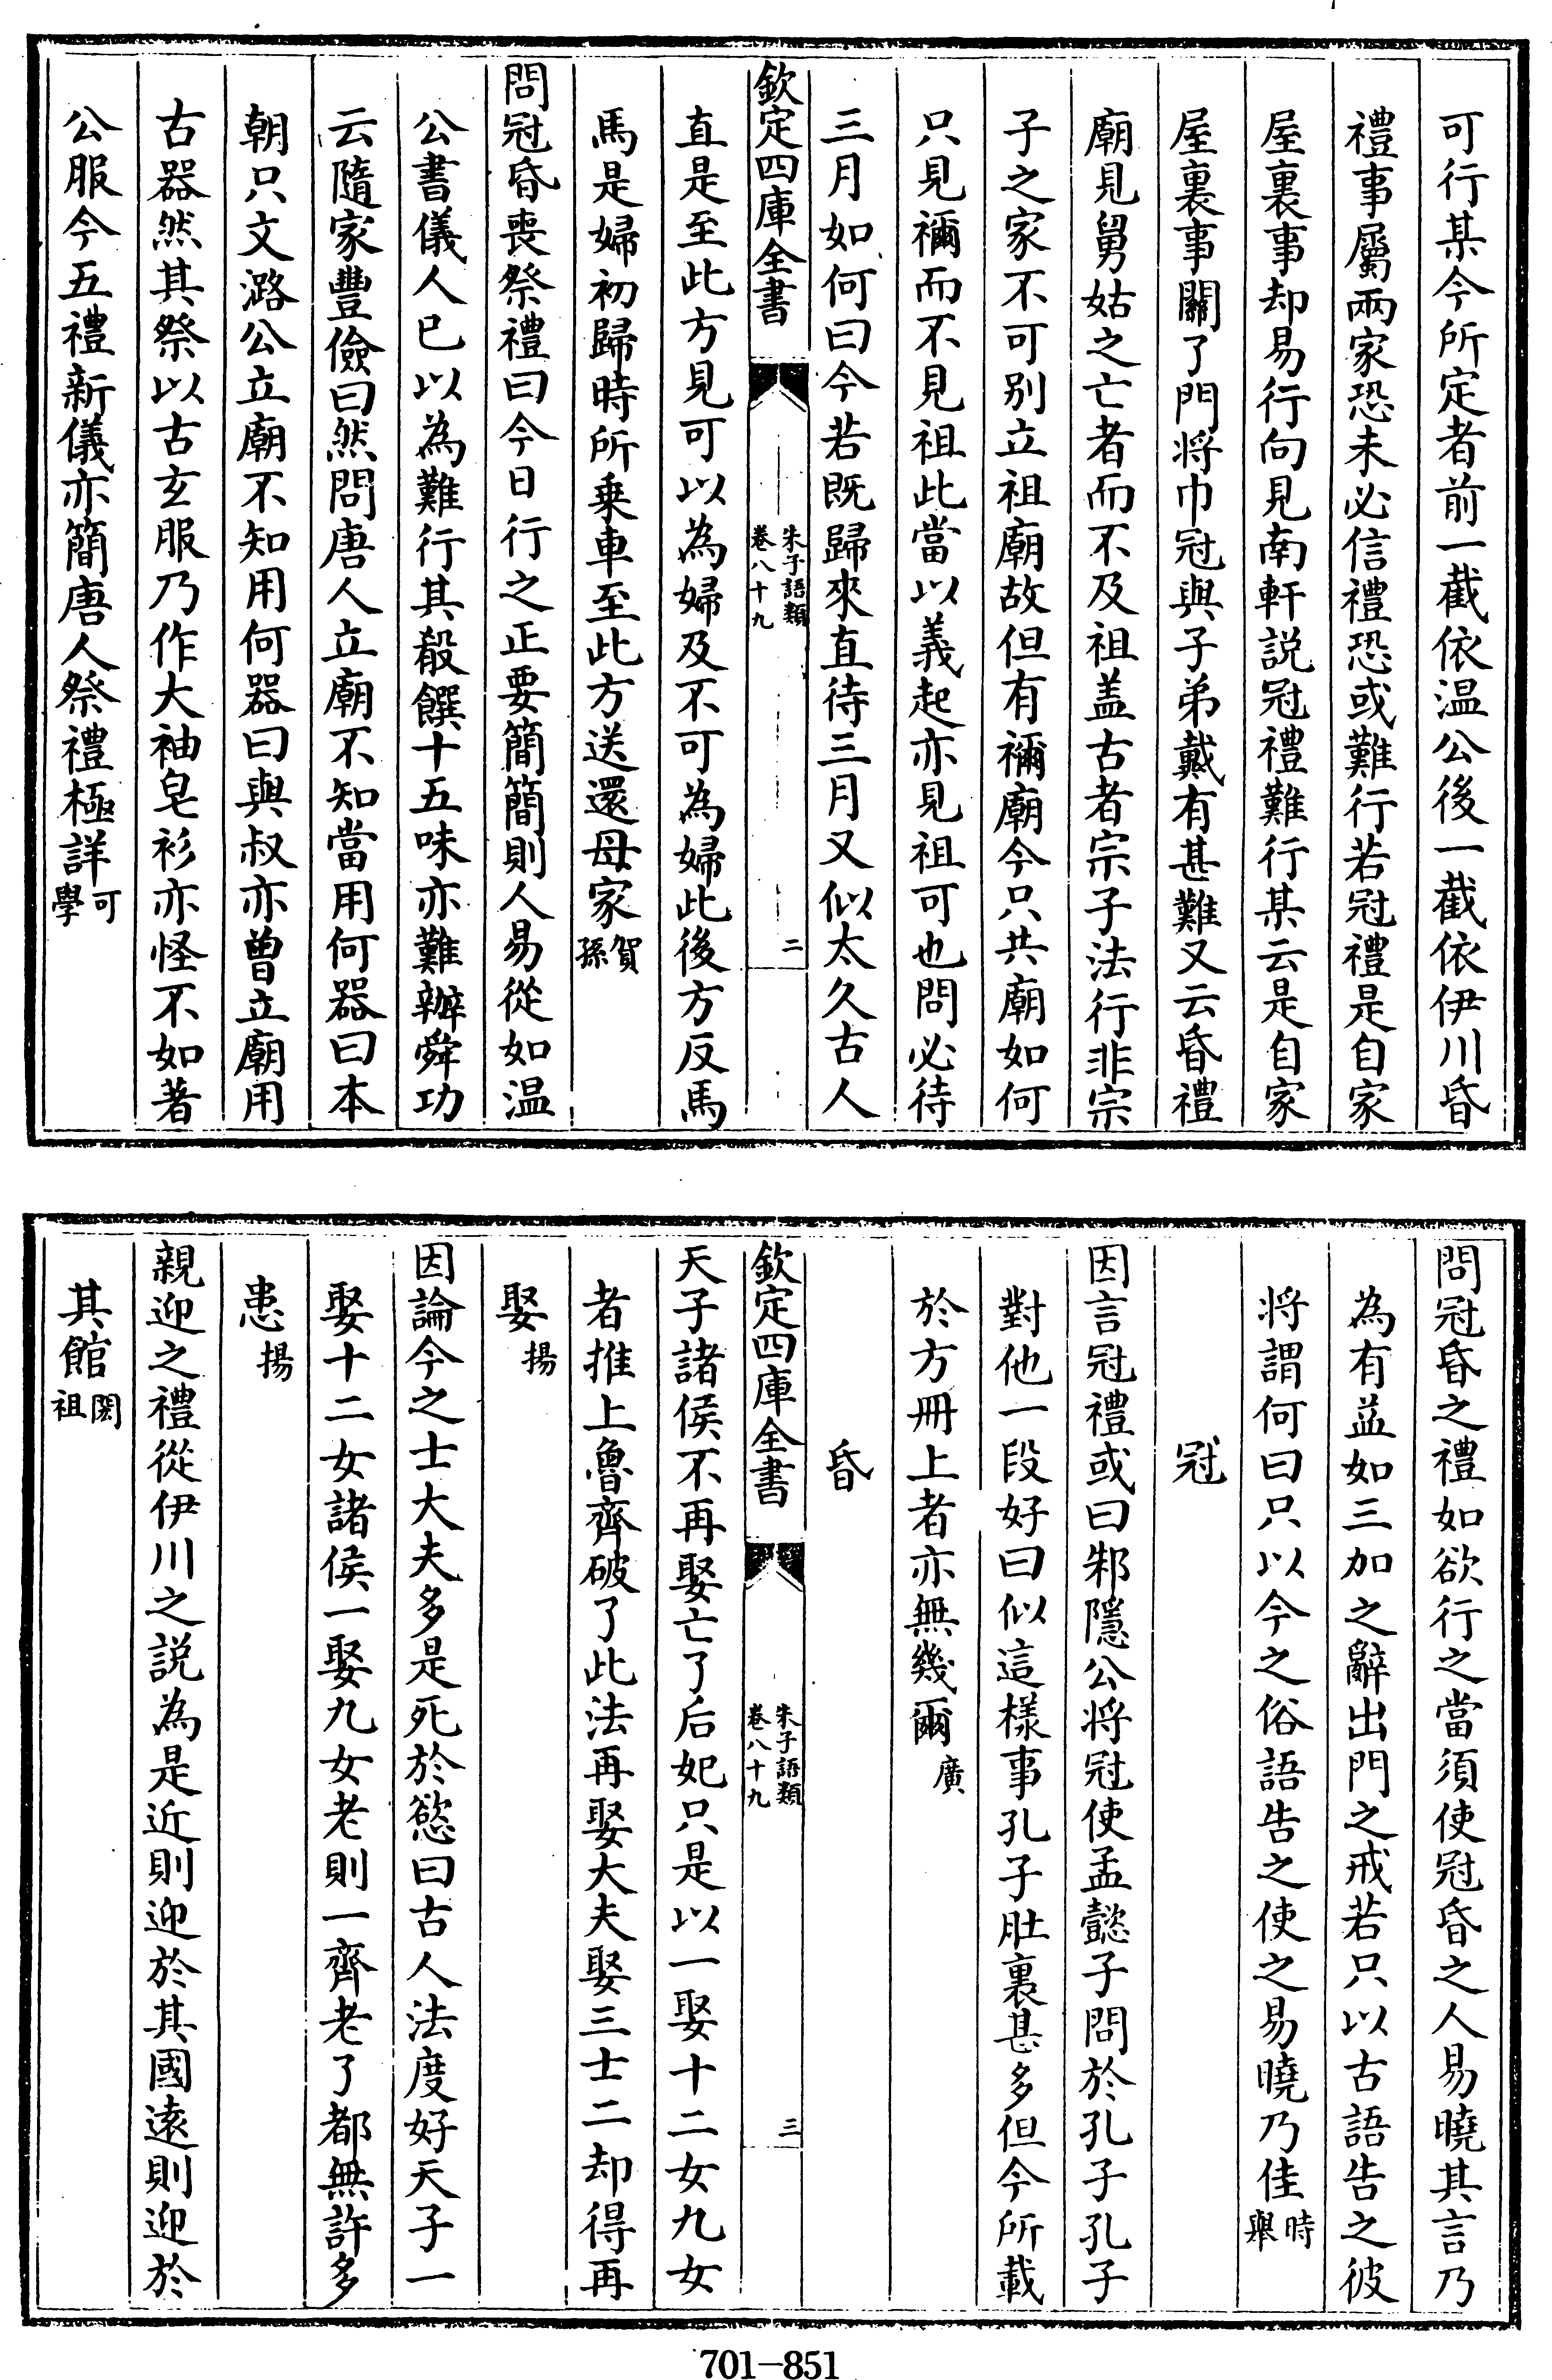 可行某今所定者前一截依温公後一截依伊川昏
禮事屬兩家恐未必信禮恐或難行若冠禮是自家
屋裏事却易行向見南軒説冠禮難行某云是自家
屋裏事關了門將巾冠與子弟戴有甚難又云昏禮
廟見舅姑之亡者而不及祖盖古者宗子法行非宗
子之家不可别立祖廟故但有禰廟今只共廟如何
只見禰而不見祖此當以義起亦見祖可也問必待
三月如何曰今若既歸來直待三月又似太久古人
欽定四庫全書
朱子語類
卷八十九
二
直是至此方見可以為婦及不可為婦此後方反馬
馬是婦初歸時所乗車至此方送還母家賀孫
問冠昏喪祭禮曰今日行之正要簡簡則人易從如温
公書儀人已以為難行其殽饌十五味亦難辦舜功
云隨家豐儉曰然問唐人立廟不知當用何器曰本
朝只文潞公立廟不知用何器曰與叔亦曾立廟用
古器然其祭以古玄服乃作大袖皂衫亦怪不如著
公服今五禮新儀亦簡唐人祭禮極詳可學
問冠昏之禮如欲行之當須使冠昏之人易曉其言乃
為有益如三加之辭出門之戒若只以古語告之彼
將謂何曰只以今之俗語告之使之易曉乃佳時舉
冠
因言冠禮或曰邾隱公將冠使孟懿子問於孔子孔子
對他一段好曰似這樣事孔子肚裏甚多但今所載
於方冊上者亦無幾爾廣
昏
欽定四庫全書
朱子語類
卷八十九
三
天子諸侯不再娶亡了后妃只是以一娶十二女九女
者推上魯齊破了此法再娶大夫娶三士二却得再
娶揚
因論今之士大夫多是死於慾曰古人法度好天子一
娶十二女諸侯一娶九女老則一齊老了都無許多
患揚
親迎之禮從伊川之説為是近則迎於其國逺則迎於
其館閎祖
701-851